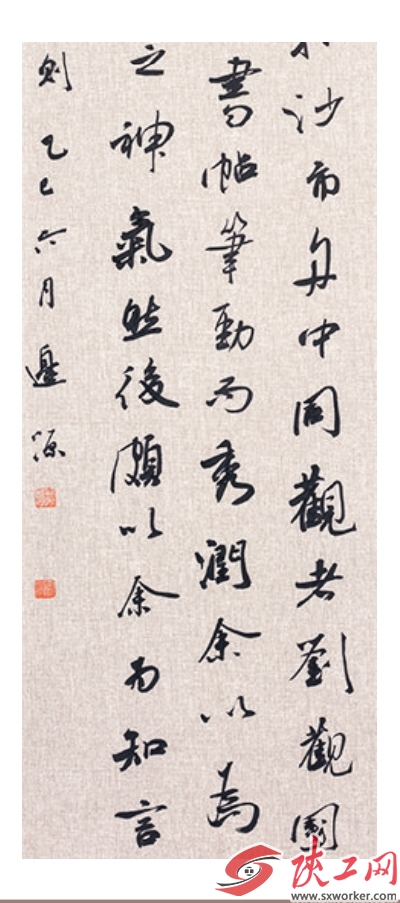 沙市舟中同觀者劉觀國
書帖筆勁而秀潤余以為
之神氣然後頗以余為知言
則 乙巳六月 邊源
陕工网
www.sxworker.com